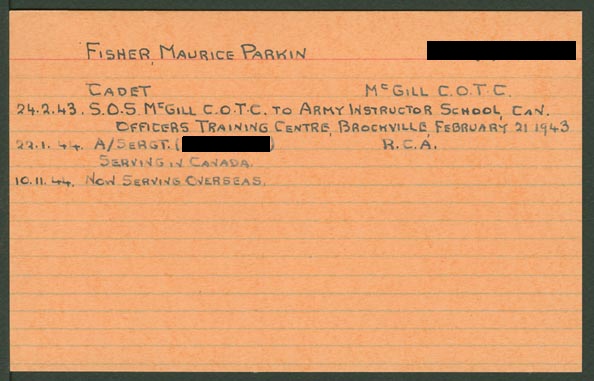 FISHER, MAURICE PARKIN
CADET McGILL C.O.T.C.
24.2.43. S.O.S. McGILL C.O.T.C. TO ARMY INSTRUCTOR SCHOOL, CAN.
OFFICERS TRAINING CENTRE, BROCKVILLE, FEBRUARY 21 1943
22.1.44. A/SERGT. ( ) R.C.A.
SERVING IN CANADA.
10.11.44. NOW SERVING OVERSEAS.